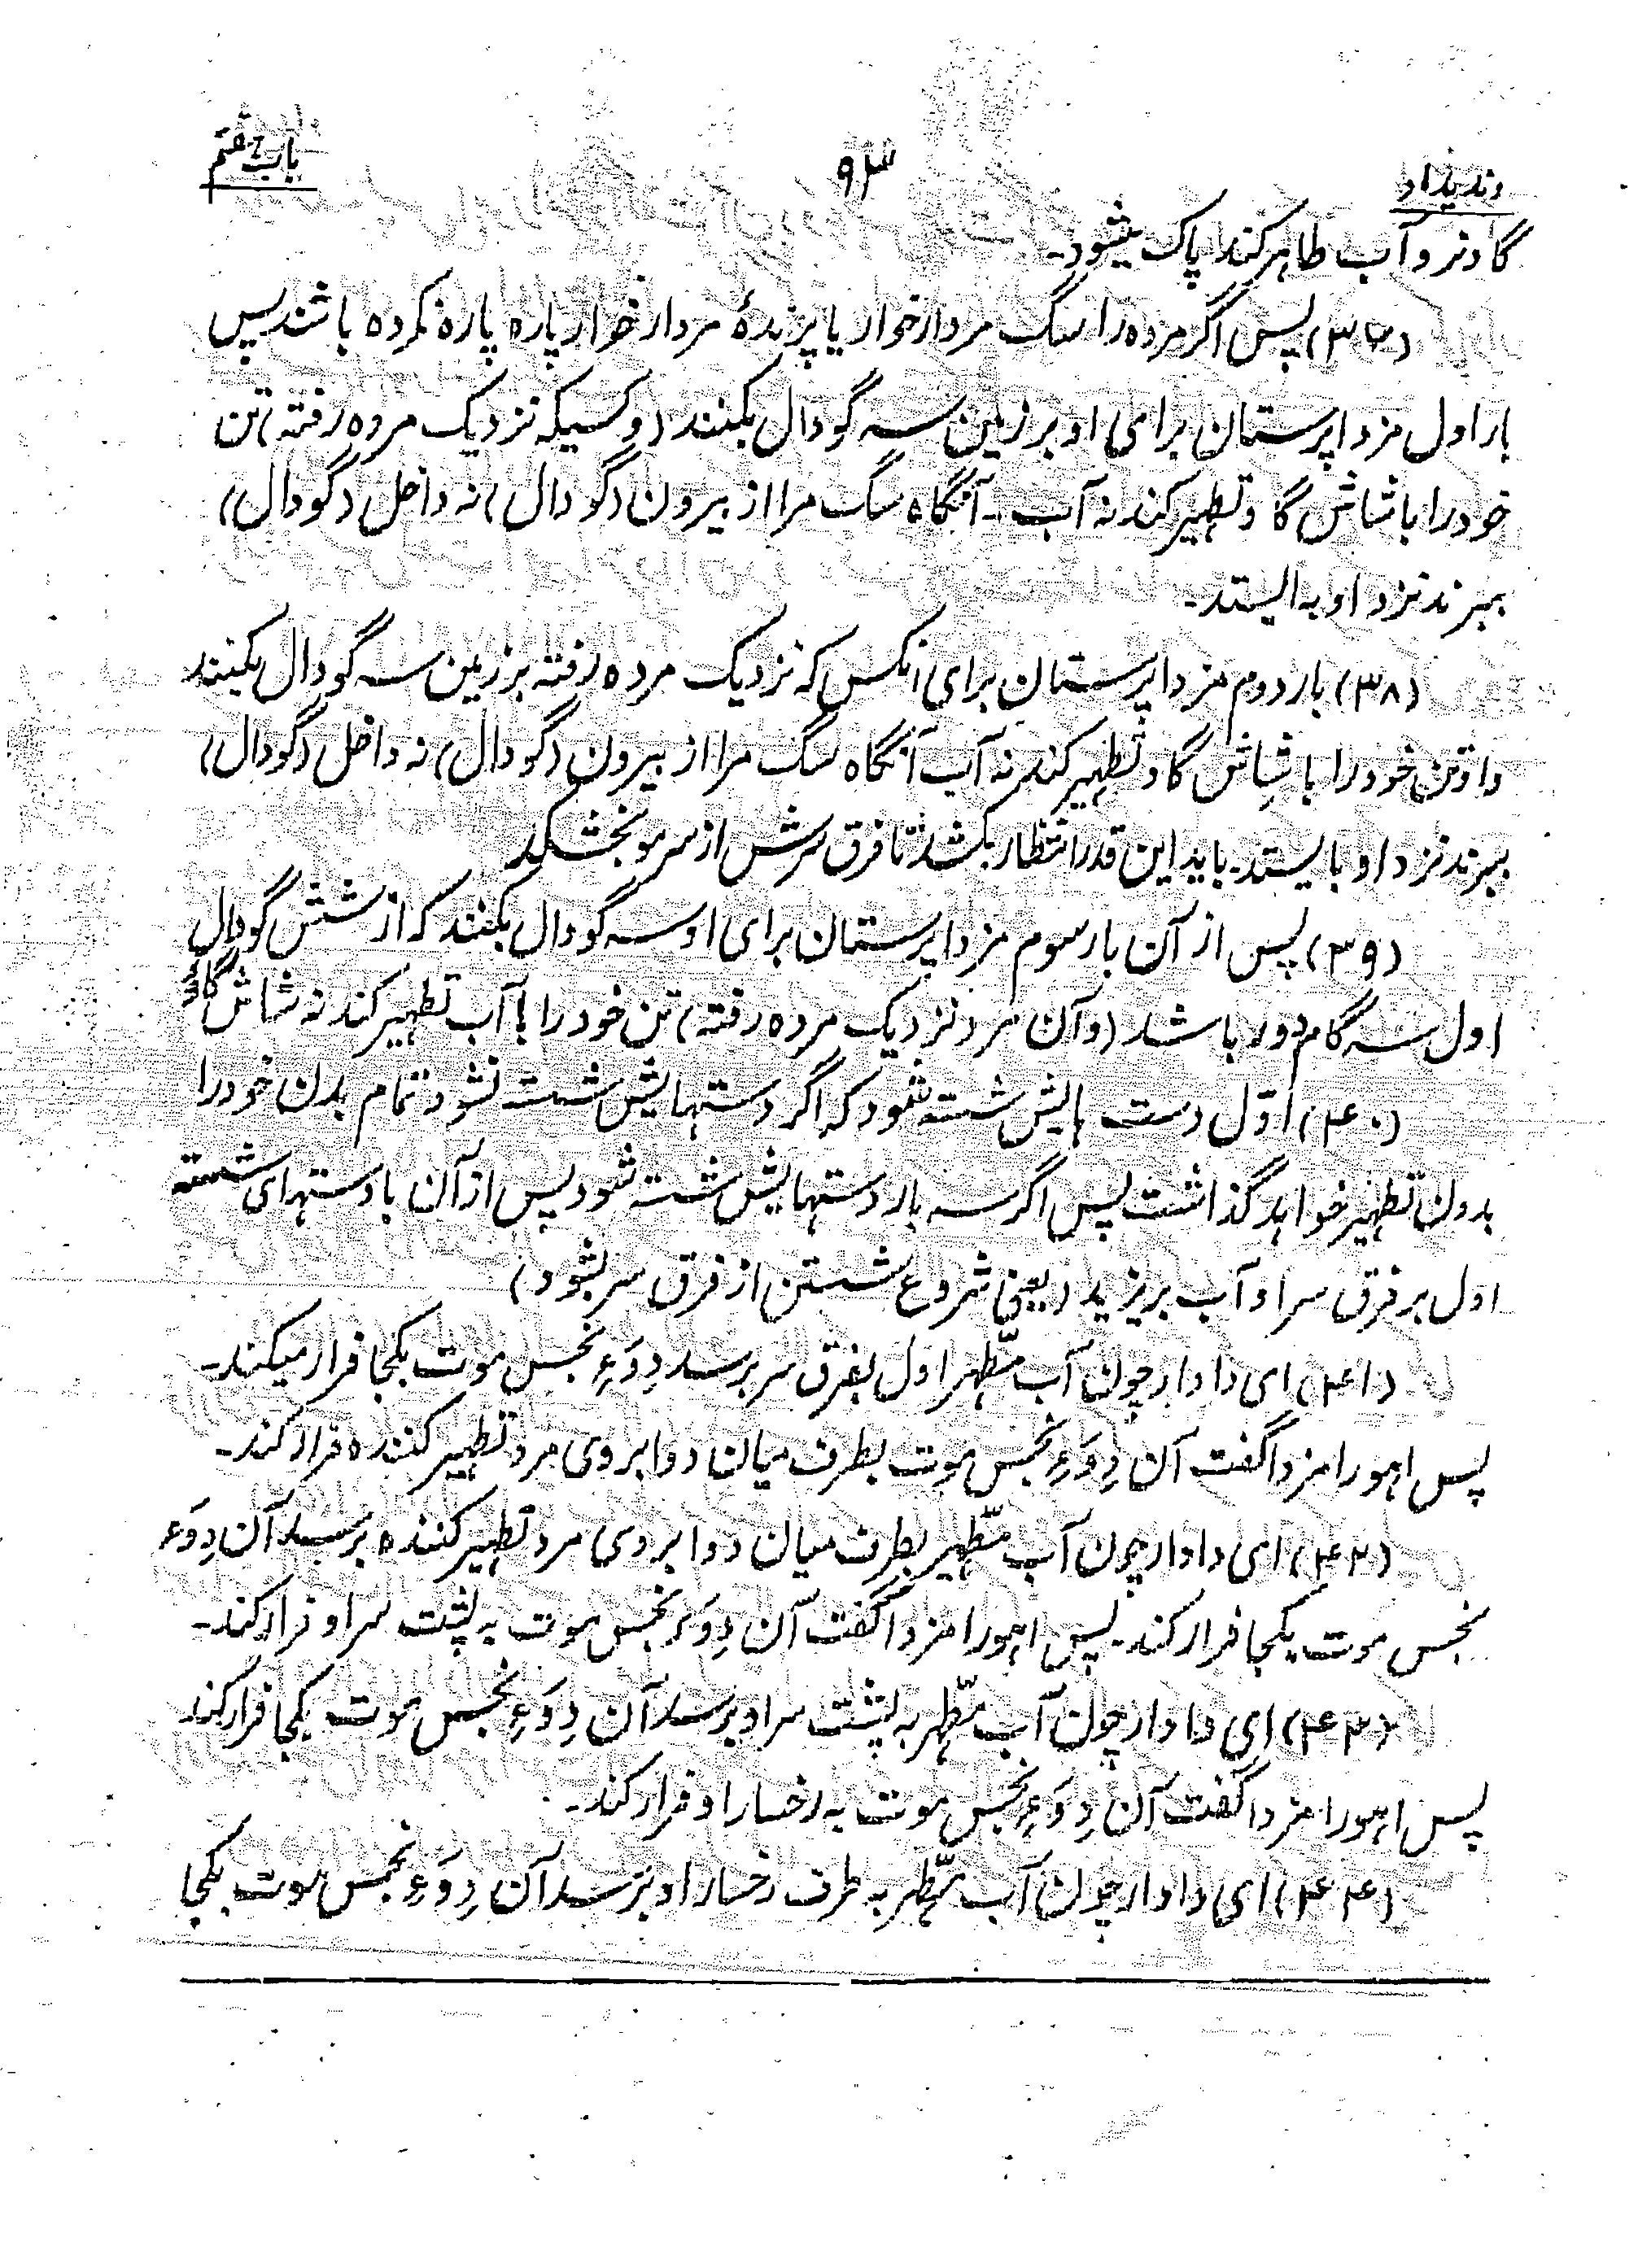 وندیداد
۹۳
باب هشتم
گاو نر و آب طاهر کند پاک میشود-
(۳۷) پس اگر مرده را سگ مردار خوار یا پرندهٔ مردار خوار پاره پاره نکرده باشند پس
بار اول مزداپرستان برای او بر زمین سه گودال بکنند (و کسیکه نزدیک مرده رفته) تن
خود را با شاش گاو تطهیر کند نه آب-آنگاه سگ مرا از بیرون (گودال) نه داخل (گودال)
ببرند نزد او به ایستد-
(۳۸) بار دوم مزداپرستان برای آنکس که نزدیک مرده رفته بر زمین سه گودال بکنند
و او تن خود را با شاش گاو تطهیر کند نه آب آنگاه سگ مرا از بیرون (گودال) نه داخل (گودال)
ببرند نزد او بایستد-باید این قدر انتظار بکشد تا فرق سرش از سر مو بخشکد
(۳۹) پس از آن بار سوم مزداپرستان برای او سه گودال بکنند که از شش گودال
اول سه گام دور باشد (و آن مرد نزدیک مرده رفته) تن خود را با آب تطهیر کند نه شاش گاو
(۴۰) اوّل دست هایش شسته شود که اگر دستهایش شست نشود تمام بدن خود را
بدون تطهیر خواهد گذاشت پس اگر سه بار دستهایش شسته شود پس از آن با دستهای شسته
اول بر فرق سر او آب بریزید (یعنی شروع شستن از فرق سر بشود)
(۴۱) ای دادار چون آب مطّهر اول بفرق سر برسد دِوَءِ نجس موت بکجا فرار میکند-
پس اهورامزدا گفت آن دِوَءِ نجس موت بطرف میان دو ابروی مرد تطهیر کننده فرار کند-
(۴۲) ای دادار چون آب مطّهیر بطرف میان دو ابروی مرد تطهیر کننده برسد آن دِوَءِ
نجس موت بکجا فرار کند-پس اهورامزدا گفت آن دِوَءِ نجس موت به پشت سر او فرار کند-
(۴۳) ای دادار چون آب مطّهر به پشت سر او برسد آن دِوَءِ نجس موت بکجا فرار کند
پس اهورامزدا گفت آن دِوَءِ نجس موت به رخسار او فرار کند-
(۴۴) ای دادار چون آب مطّهر به طرف رخسار او برسد آن دِوَءِ نجس موت بکجا